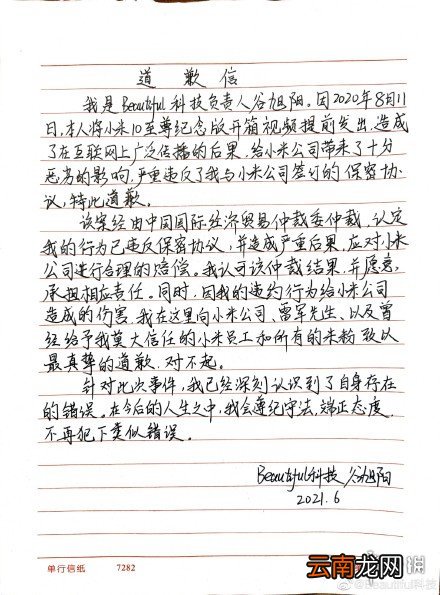 道歉信
我是Beautiful科技负责人谷旭阳。因2020年8月11
日,本人将小米10至尊纪念版开箱视频提前发出,造成
了在互联网上广泛传播的后果,给小米公司带来了十分
恶劣的影响,严重违反了我与小米公司签订的保密协
议,特此道歉。
该案经由中国国际经济贸易仲裁委仲裁,认定
我的行为已违反保密协议,并造成严重后果,应对小米
公司进行合理的赔偿。我认可该仲裁结果,并愿意,
承担相应责任。同时,因我的违约行为给小米公司
造成的伤害,我在这里向小米公司、雷军先生、以及曾
经给予我莫大信任的小米员工和所有的米粉致以
最真挚的道歉,对不起。
针对此次事件,我已经深刻认识到了自身存在
的错误。在今后的人生之中,我会尊纪守法,端正态度,
不再犯下类似错误。
Beautiful科技 谷旭阳
2021.6
单行信纸 7282
云南龙网
@Beautiful科技